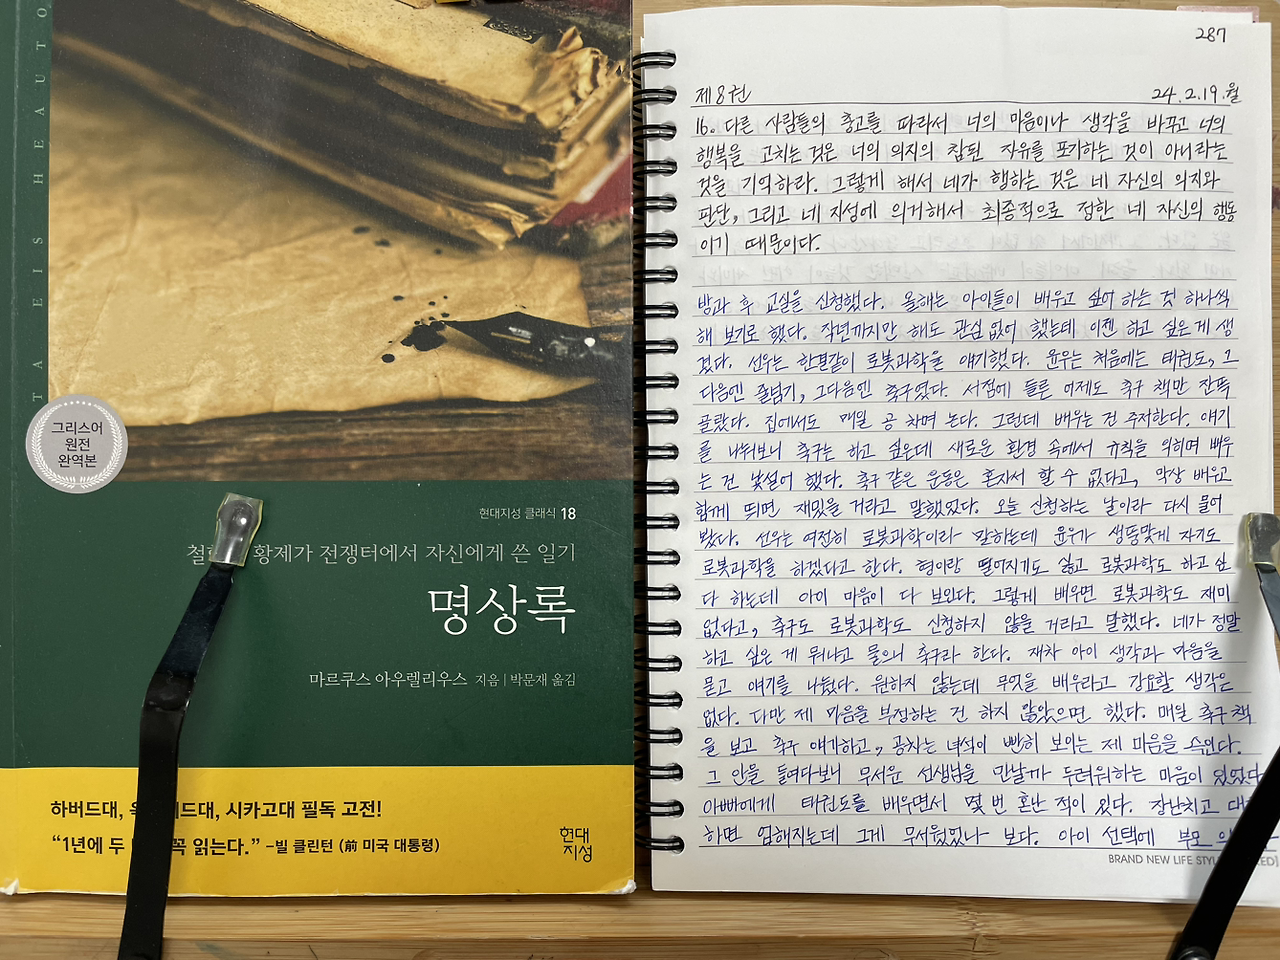 TA EIS HEAUTO
그리스어
원전
완역본
현대지성 클래식 18
황제가 전쟁터에서 자신에게 쓴 일기
명상록
마르쿠스 아우렐리우스 지음 | 박문재 옮김
하버드대, 시카고대 필독 고전!
“1년에 두 꼭 읽는다.” –빌 클린턴 (前 미국 대통령)
현대
지성
287
제8권 24.2.19.월
16. 다른 사람들의 충고를 따라서 너의 마음이나 생각을 바꾸고 너의
행복을 고치는 것은 너의 의지의 참된 자유를 포기하는 것이 아니라는
것을 기억하라. 그렇게 해서 네가 행하는 것은 네 자신의 의지와
판단, 그리고 네 지성에 의거해서 최종적으로 정한 네 자신의 행동
이기 때문이다.
방과 후 교실을 신청했다. 올해는 아이들이 배우고 싶어 하는 것 하나씩
해 보기로 했다. 작년까지만 해도 관심 없어 했는데 이젠 하고 싶은 게 생
겼다. 선우는 한결같이 로봇과학을 얘기했다. 윤우는 처음에는 태권도, 그
다음엔 줄넘기, 그다음엔 축구였다. 서점에 들른 어제도 축구 책만 잔뜩
골랐다. 집에서도 매일 공 차며 논다. 그런데 배우는 건 주저한다. 얘기
를 나눠보니 축구는 하고 싶은데 새로운 환경 속에서 규칙을 익히며 배우
는 건 낯설어 했다. 축구 같은 운동은 혼자서 할 수 없다고, 막상 배우고
함께 뛰면 재밌을 거라고 말했었다. 오늘 신청하는 날이라 다시 물어
봤다. 선우는 여전히 로봇과학이라 말하는데 윤우가 생뚱맞게 자기도
로봇과학을 하겠다고 한다. 형이랑 떨어지기도 싫고 로봇과학도 하고 싶
다 하는데 아이 마음이 다 보인다. 그렇게 배우면 로봇과학도 재미
없다고, 축구도 로봇과학도 신청하지 않을 거라고 말했다. 네가 정말
하고 싶은 게 뭐냐고 물으니 축구라 한다. 재차 아이 생각과 마음을
묻고 얘기를 나눴다. 원하지 않는데 무엇을 배우라고 강요할 생각은
없다. 다만 제 마음을 부정하는 건 하지 않았으면 했다. 매일 축구 책
을 보고 축구 얘기하고, 공차는 녀석이 빤히 보이는 제 마음을 속인다.
그 안을 들여다보니 무서운 선생님을 만날까 두려워하는 마음이 있었다
아빠에게 태권도를 배우면서 몇 번 혼난 적이 있다. 장난치고
하면 엄해지는데 그게 무서웠었나 보다. 아이 선택에 부모
BRAND NEW LIFE